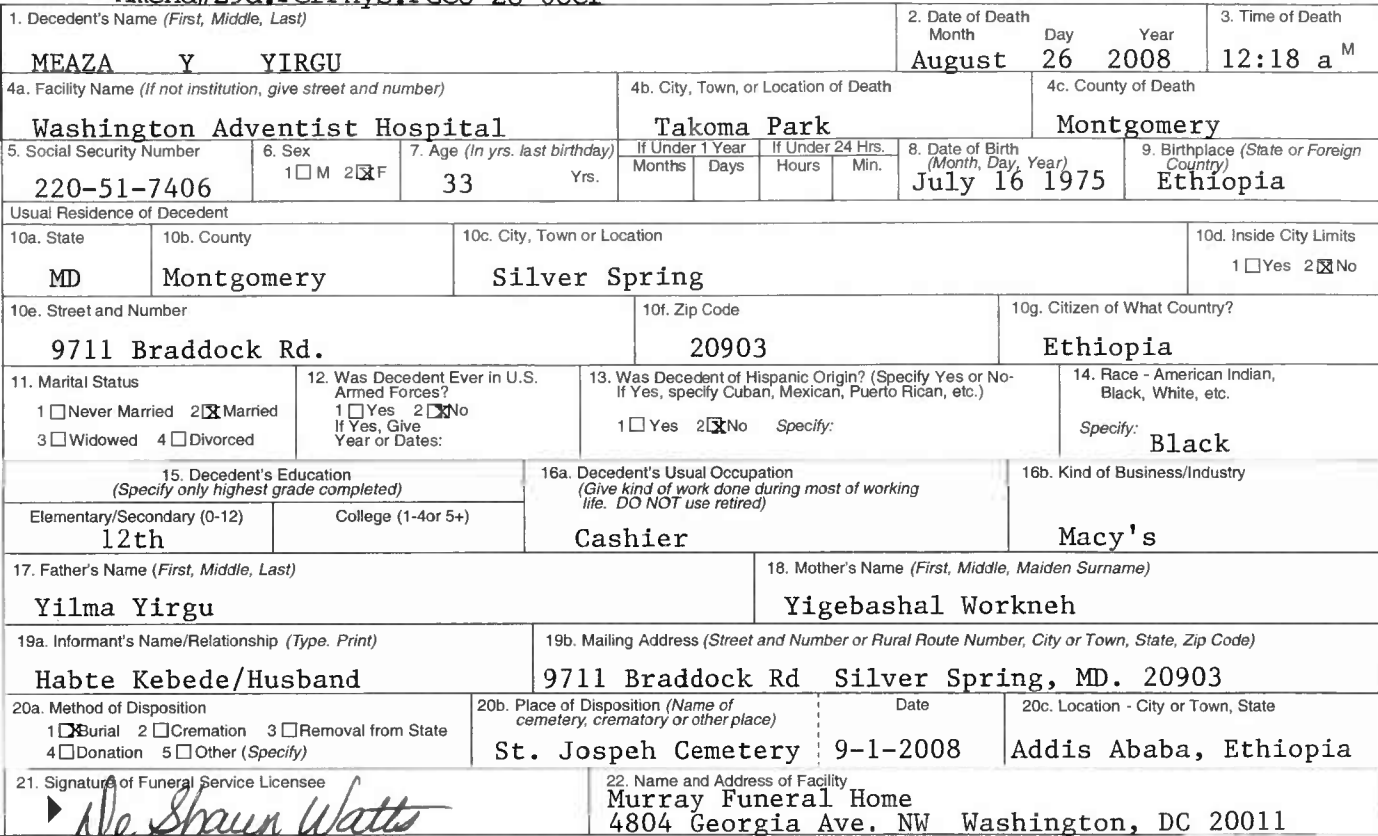 1. Decedent's Name (First, Middle, Last)
MEAZA Y YIRGU
2. Date of Death
Month Day Year
August 26 2008
3. Time of Death
12:18 a M
4a. Facility Name (If not institution, give street and number)
Washington Adventist Hospital
4b. City, Town, or Location of Death
Takoma Park
4c. County of Death
Montgomery
5. Social Security Number
220-51-7406
6. Sex
1 ☐ M 2 ☒ F
7. Age (In yrs. last birthday)
33 Yrs.
If Under 1 Year
Months Days
If Under 24 Hrs.
Hours Min.
8. Date of Birth
(Month, Day, Year)
July 16 1975
9. Birthplace (State or Foreign
Country)
Ethiopia
Usual Residence of Decedent
10a. State
MD
10b. County
Montgomery
10c. City, Town or Location
Silver Spring
10d. Inside City Limits
1 ☐ Yes 2 ☒ No
10e. Street and Number
9711 Braddock Rd.
10f. Zip Code
20903
10g. Citizen of What Country?
Ethiopia
11. Marital Status
1 ☐ Never Married 2 ☒ Married
3 ☐ Widowed 4 ☐ Divorced
12. Was Decedent Ever in U.S.
Armed Forces?
1 ☐ Yes 2 ☒ No
If Yes, Give
Year or Dates:
13. Was Decedent of Hispanic Origin? (Specify Yes or No-
If Yes, specify Cuban, Mexican, Puerto Rican, etc.)
1 ☐ Yes 2 ☒ No Specify:
14. Race - American Indian,
Black, White, etc.
Specify: Black
15. Decedent's Education
(Specify only highest grade completed)
Elementary/Secondary (0-12)
12th
College (1-4or 5+)
16a. Decedent's Usual Occupation
(Give kind of work done during most of working
life. DO NOT use retired)
Cashier
16b. Kind of Business/Industry
Macy's
17. Father's Name (First, Middle, Last)
Yilma Yirgu
18. Mother's Name (First, Middle, Maiden Surname)
Yigebashal Workneh
19a. Informant's Name/Relationship (Type. Print)
Habte Kebede/Husband
19b. Mailing Address (Street and Number or Rural Route Number, City or Town, State, Zip Code)
9711 Braddock Rd Silver Spring, MD. 20903
20a. Method of Disposition
1 ☒ Burial 2 ☐ Cremation 3 ☐ Removal from State
4 ☐ Donation 5 ☐ Other (Specify)
20b. Place of Disposition (Name of
cemetery, crematory or other place)
St. Jospeh Cemetery
Date
9-1-2008
20c. Location - City or Town, State
Addis Ababa, Ethiopia
21. Signature of Funeral Service Licensee
De Shaun Watts
22. Name and Address of Facility
Murray Funeral Home
4804 Georgia Ave. NW Washington, DC 20011